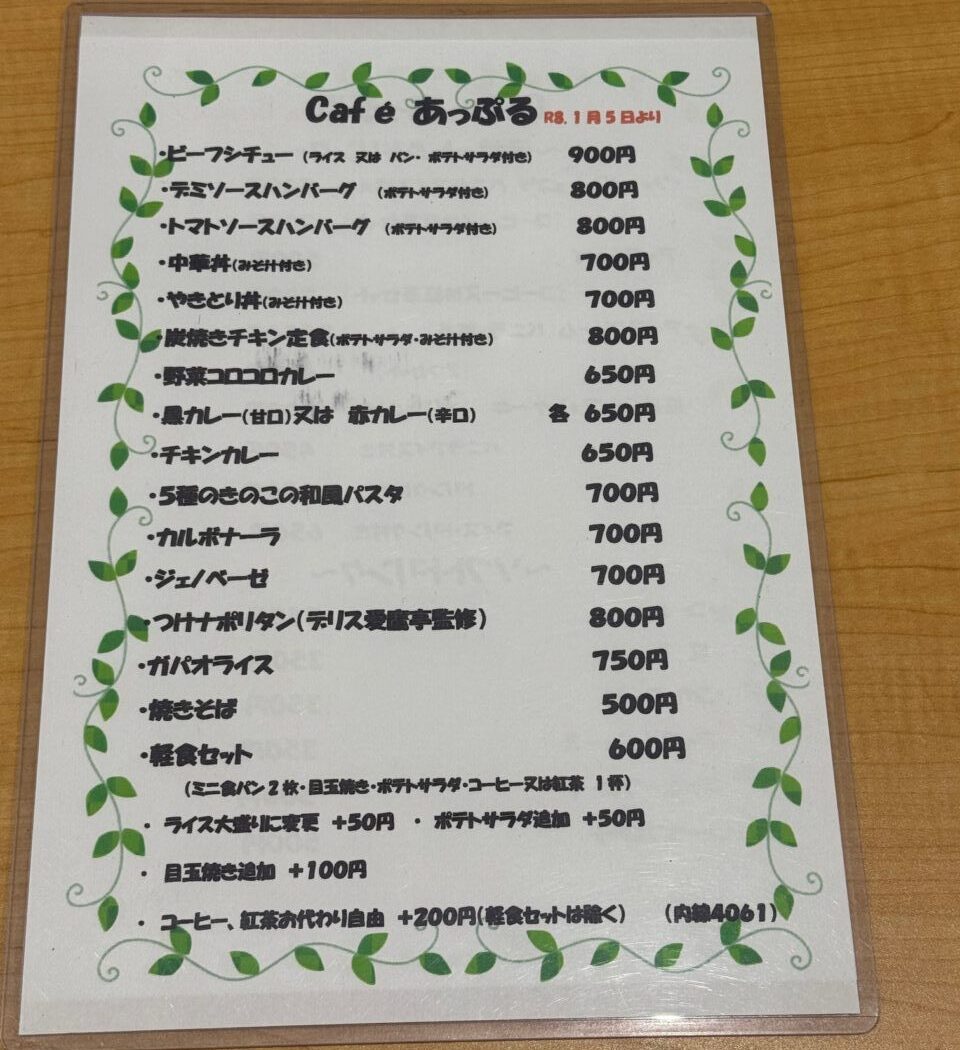 Café あっぷる R8.1月5日より
・ビーフシチュー (ライス 又は パン・ポテトサラダ付き) 900円
・デミソースハンバーグ (ポテトサラダ付き) 800円
・トマトソースハンバーグ (ポテトサラダ付き) 800円
・中華丼(みそ汁付き) 700円
・やきとり丼(みそ汁付き) 700円
・炭焼きチキン定食(ポテトサラダ・みそ汁付き) 800円
・野菜コロコロカレー 650円
・黒カレー(甘口)又は 赤カレー(辛口) 各 650円
・チキンカレー 650円
・5種のきのこの和風パスタ 700円
・カルボナーラ 700円
・ジェノベーゼ 700円
・つけナポリタン(デリス愛鷹亭監修) 800円
・ガパオライス 750円
・焼きそば 500円
・軽食セット 600円
(ミニ食パン2枚・目玉焼き・ポテトサラダ・コーヒー又は紅茶 1杯)
・ ライス大盛りに変更 +50円 ・ ポテトサラダ追加 +50円
・ 目玉焼き追加 +100円
・ コーヒー、紅茶お代わり自由 +200円(軽食セットは除く) (内線4061)